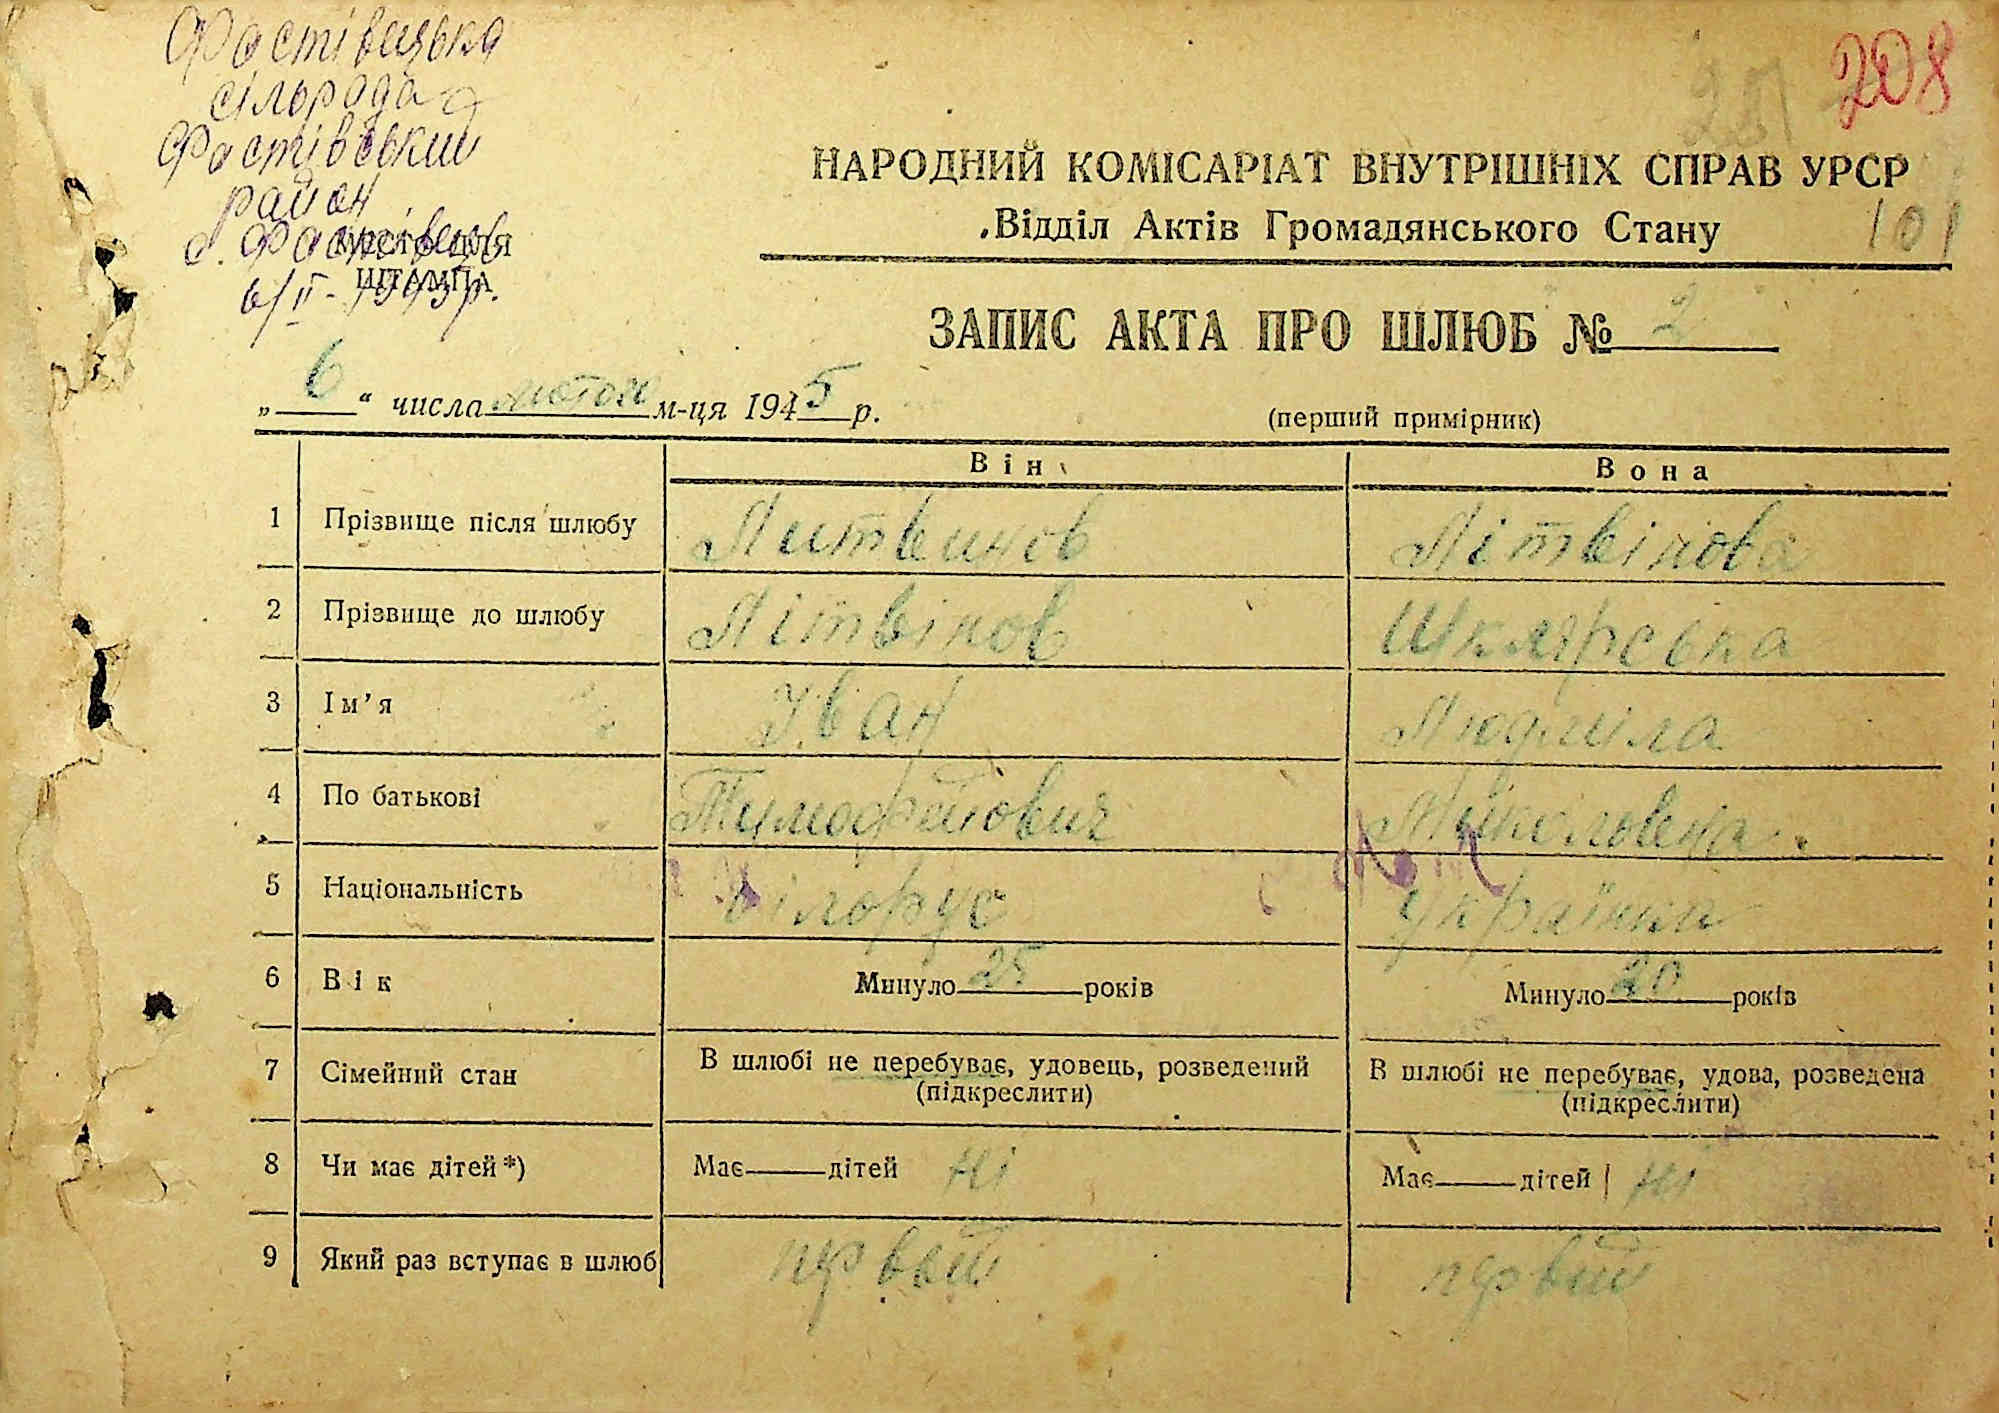 Фастівецька
сільрада
Фастівський
район
с. Фастівець
МІСЦЕ ДЛЯ
ШТАМПА
6/II-1945р.
208
НАРОДНИЙ КОМІСАРІАТ ВНУТРІШНІХ СПРАВ УРСР
Відділ Актів Громадянського Стану
101
ЗАПИС АКТА ПРО ШЛЮБ № 2
„ 6 “ числа лютого м-ця 1945 р.
(перший примірник)
Він
Вона
1 Прізвище після шлюбу Литвинов Літвінова
2 Прізвище до шлюбу Літвінов Шклярська
3 Ім’я Іван Людміла
4 По батькові Тимофейович Миколовена.
5 Національність білорус українка
6 Вік Минуло 25 років Минуло 20 років
7 Сімейний стан В шлюбі не перебуває, удовець, розведений (підкреслити) В шлюбі не перебуває, удова, розведена (підкреслити)
8 Чи має дітей *) Має дітей ні Має дітей ні
9 Який раз вступає в шлюб первый первий